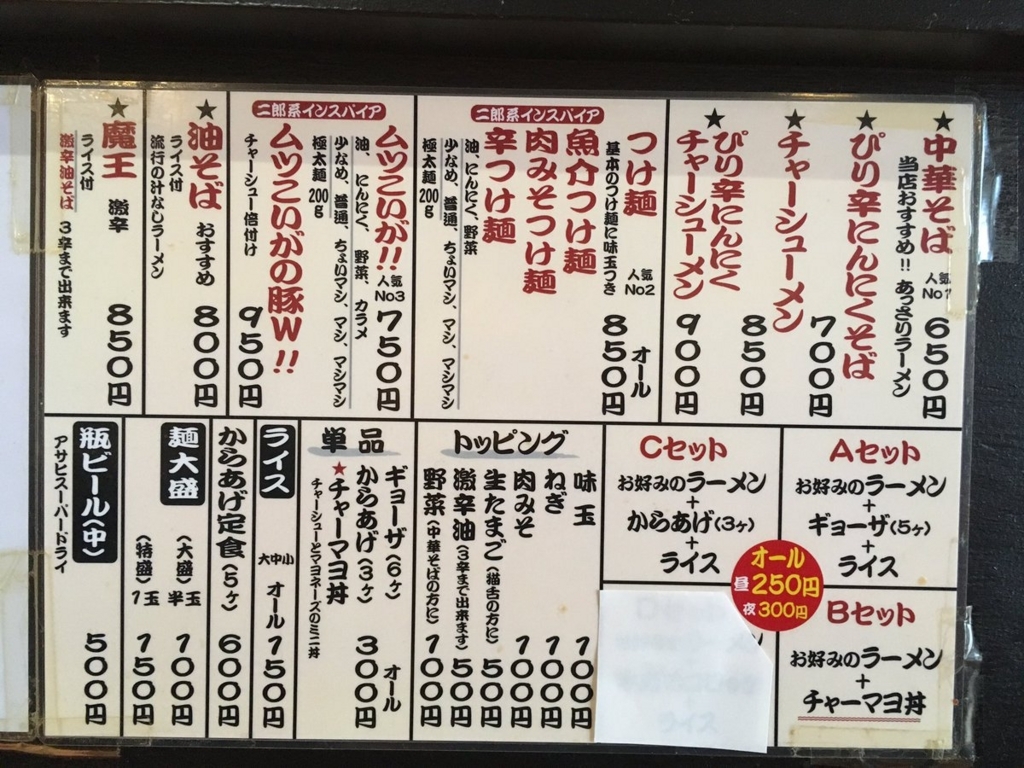 ★中華そば 人気No1 650円
当店おすすめ!! あっさりラーメン
★ぴり辛にんにくそば
850円
★チャーシューメン
700円
★ぴり辛にんにく
チャーシューメン
900円
二郎系インスパイア
つけ麺 人気No2 オール850円
基本のつけ麺に味玉つき
魚介つけ麺
肉みそつけ麺
辛つけ麺
油、にんにく、野菜
少なめ、普通、ちょいマシ、マシ、マシマシ
極太麺200g
二郎系インスパイア
ムツこいが!! 人気No3 750円
油、にんにく、野菜、カラメ
少なめ、普通、ちょいマシ、マシ、マシマシ
極太麺200g
ムツこいがの豚W!!
チャーシュー倍付け 950円
★油そば おすすめ 800円
ライス付
流行の汁なしラーメン
★魔王 激辛 850円
ライス付
激辛油そば 3辛まで出来ます
Aセット
お好みのラーメン
+
ギョーザ(5ヶ)
+
ライス
Bセット
お好みのラーメン
+
チャーマヨ丼
Cセット
お好みのラーメン
+
からあげ(3ヶ)
+
ライス
オール
昼250円
夜300円
ライス
トッピング
味玉 100円
ねぎ 100円
肉みそ 100円
生たまご(猫舌の方に) 50円
激辛油(3辛まで出来ます) 50円
野菜(中華そばの方に) 100円
単品
ギョーザ(6ヶ) オール
からあげ(3ヶ) 300円
★チャーマヨ丼
チャーシューとマヨネーズのミニ丼
ライス 大中小 オール150円
からあげ定食(5ヶ) 600円
麺大盛
(大盛)半玉 100円
(特盛)1玉 150円
瓶ビール(中) 500円
アサヒスーパードライ